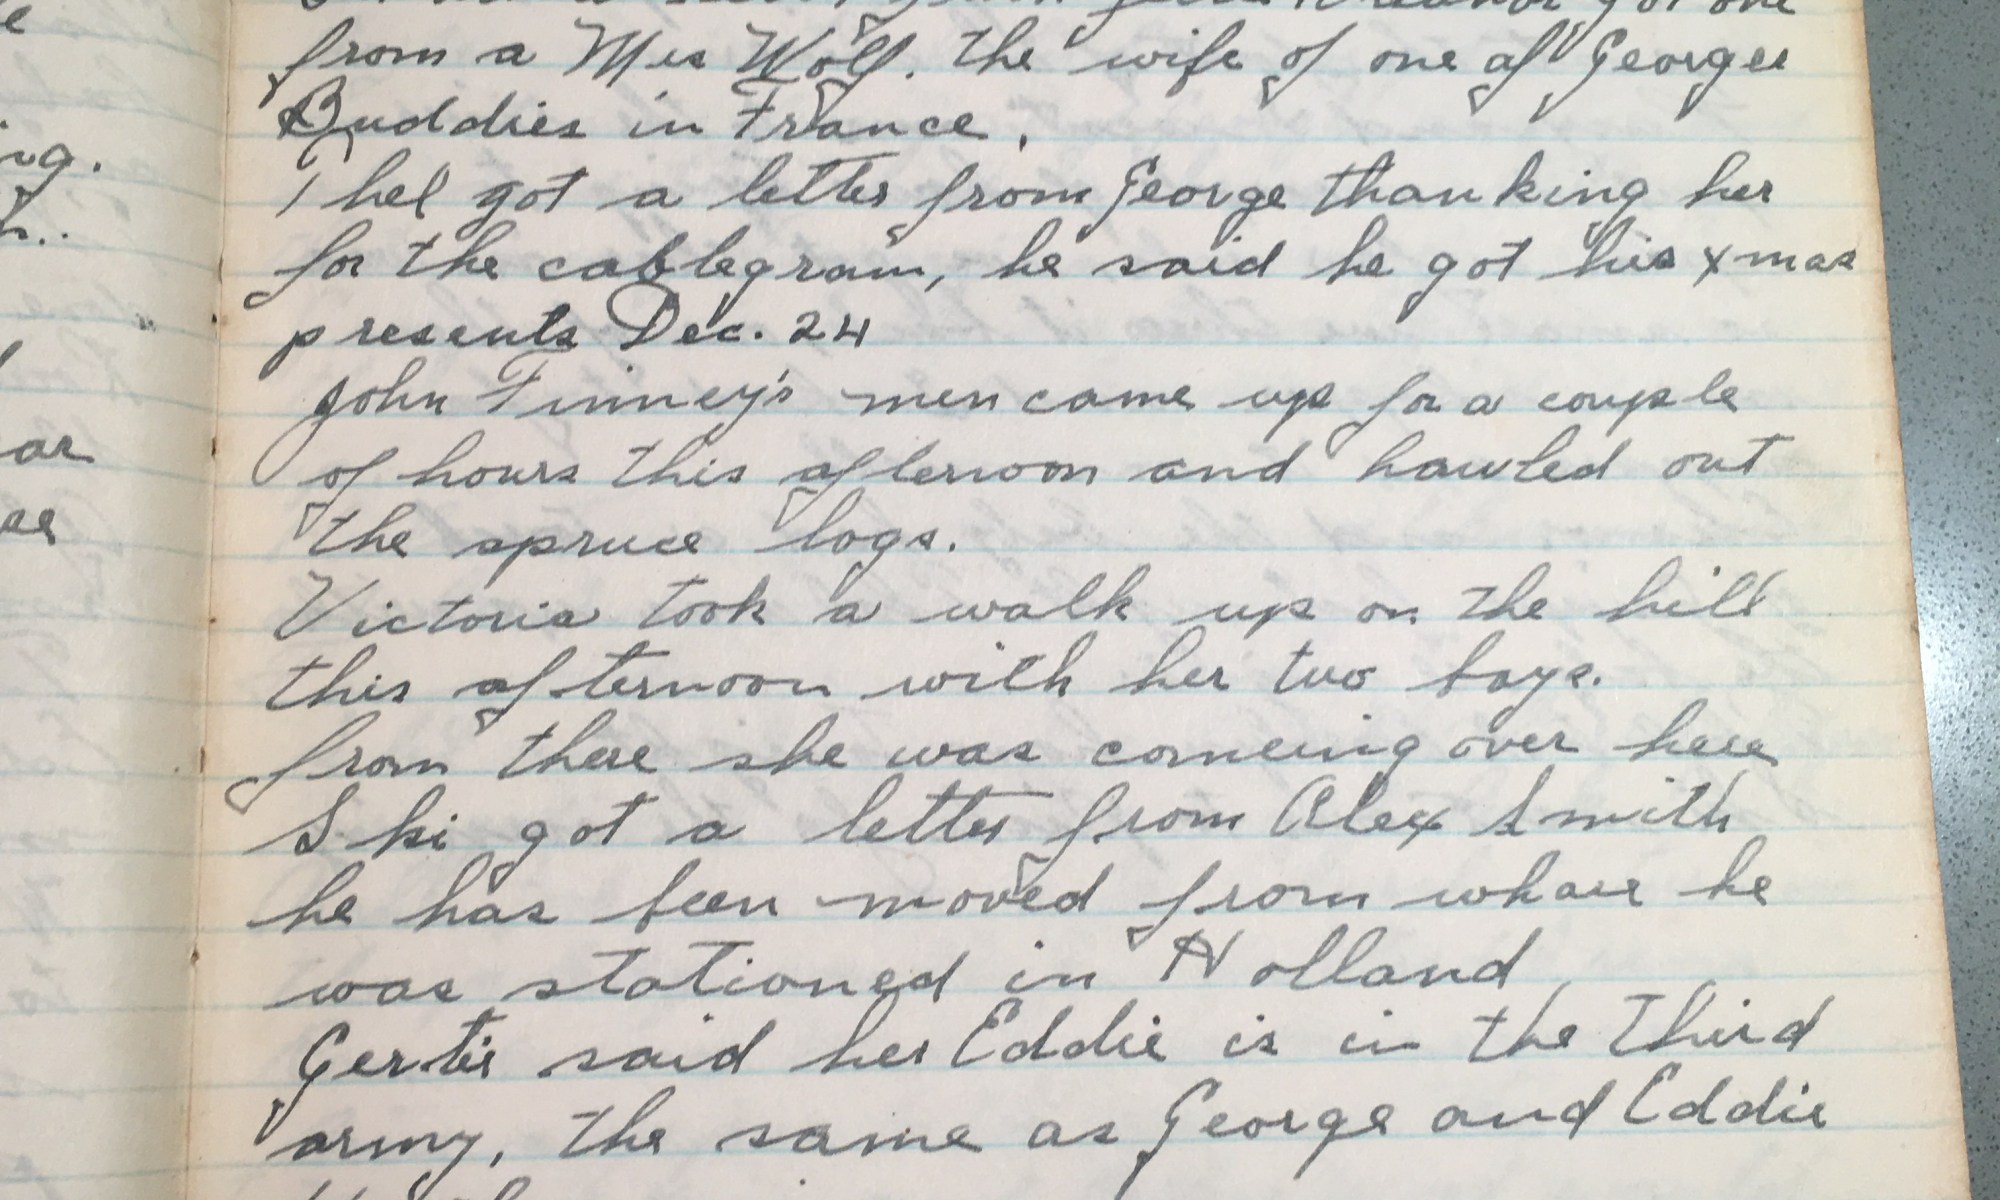 got one
from a Mrs Wolf. the wife of one of Georges
Buddies in France.
Thel got a letter from George thanking her
for the cablegram, he said he got his xmas
presents Dec. 24
John Finney's men came up for a couple
of hours this afternoon and hawled out
the spruce logs.
Victoria took a walk up on the hill
this afternoon with her two boys.
from there she was comeing over here
Ski got a letter from Alex Smith
he has been moved from whare he
was stationed in Holland
Gertie said her Eddie is in the third
army, the same as George and Eddie